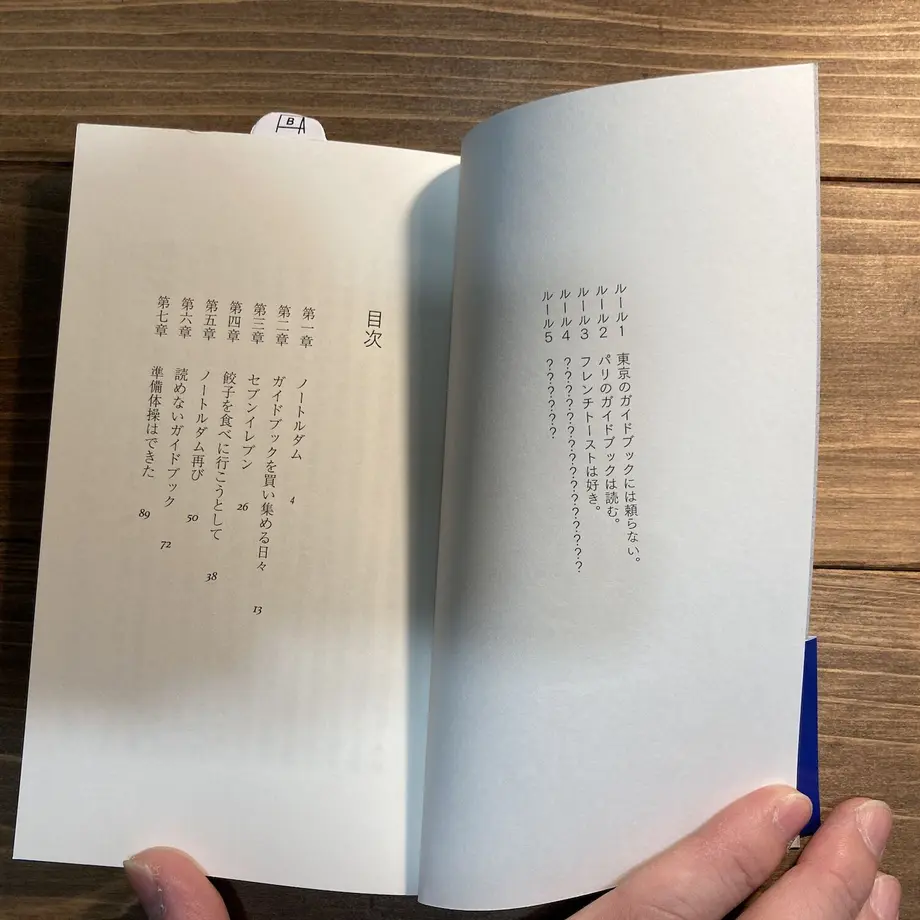 ルール1 東京のガイドブックには頼らない。
ルール2 パリのガイドブックは読む。
ルール3 フレンチトーストは好き。
ルール4 ？？？？？？？？？？？？？？？？
ルール5 ？？？？？？
目次
第一章 ノートルダム 4
第二章 ガイドブックを買い集める日々 13
第三章 セブンイレブン 26
第四章 餃子を食べに行こうとして 38
第五章 ノートルダム再び 50
第六章 読めないガイドブック 72
第七章 準備体操はできた 89
B